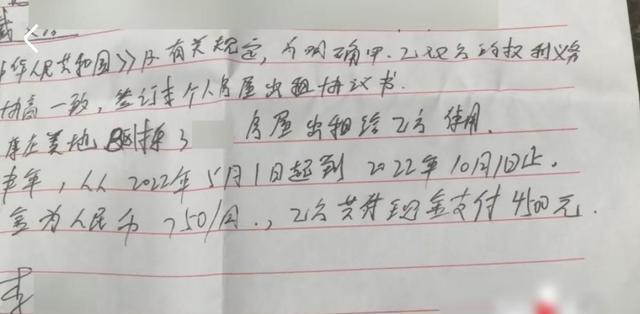 华人民共和国》及有关规定，为明确甲、乙双方的权利义务
协商一致，签订本个人房屋出租协议书.
房屋出租给乙方使用.
半年，从2022年5月1日起到2022年10月1日止.
金为人民币750/月.，乙方共付现金支付4500元.